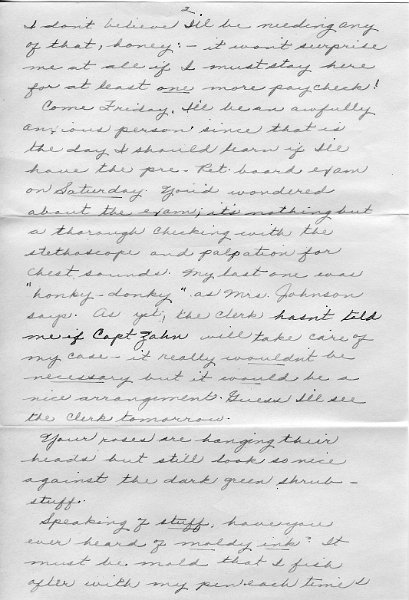 2.
I don't believe I'll be needing any
of that, honey: - it won't surprise
me at all if I must stay here
for at least one more paycheck!
Come Friday, I'll be an awfully
anxious person since that is
the day I should learn if I'll
have the pre-Ret. board exam
on Saturday. You'd wondered
about the exam; it's nothing but
a thorough checking with the
stethoscope and palpation for
chest sounds. My last one was
"honky-donky" as Mrs. Johnson
says. As yet, the clerk hasn't told
me if Capt Zahn will take care of
my case - it really wouldn't be
necessary but it would be a
nice arrangement. Guess I'll see
the clerk tomorrow.
Your roses are hanging their
heads but still look so nice
against the dark green shrub-
stuff.
Speaking of stuff, have you
ever heard of moldy ink? It
must be mold that I fish
after with my pen each time I